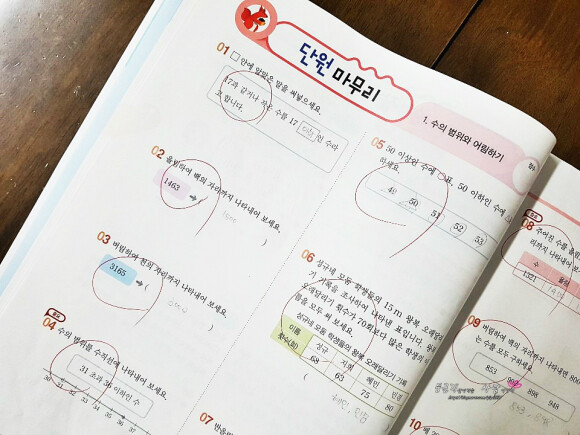 단원 마무리
1. 수의 범위와 어림하기
01 □ 안에 알맞은 말을 써넣으세요.
17과 같거나 작은 수를 17 이하 인 수라
고 합니다.
02 올림하여 백의 자리까지 나타내어 보세요.
1463 ➡ ( 1500 )
03 버림하여 천의 자리까지 나타내어 보세요.
3165 ➡ ( 3000 )
04 수의 범위를 수직선에 나타내어 보세요.
31 초과 36 이하인 수
30 31 32 33 34 35 36 37
05 50 이상인 수에 ○표, 50 이하인 수에
하세요.
49 50 51 52 53
06 성규네 모둠 학생들의 15 m 왕복 오래달리
기 기록을 조사하여 나타낸 표입니다.
오래달리기 횟수가 70회보다 많은 학생의
이름을 모두 써 보세요.
성규네 모둠 학생들의 왕복 오래달리기 기록
이름 성규 혜민 민경
횟수(회) 68 63 75 80
( 혜민, 민경
07
08 주어진 수를 올림
리까지 나타내어
수 올림
1321
09 버림하여 백의 자리까지 나타내면 800
는 수를 모두 구하세요.
853 898 948
10